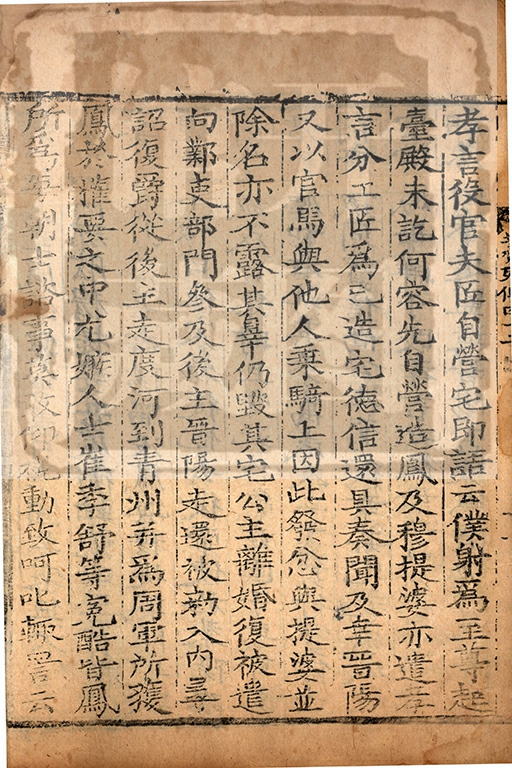 孝言役官夫匠自營宅即語云僕射爲至尊起
臺殿未訖何容先自營造鳳及穆提婆亦遣孝
言分工匠爲己造宅德信還具奏聞及幸晉陽
又以官馬與他人乗騎上因此發忿與提婆並
除名亦不露其辠仍毀其宅公主離婚復被遣
向鄴吏部門參及後主晉陽走還被勑入内尋
詔復爵從後主走度河到青州并爲周軍所獲
鳳於權要之中尤嫉人士崔季舒等寃酷皆鳳
所爲每朝士諮事莫敢仰視動致呵叱輙詈云